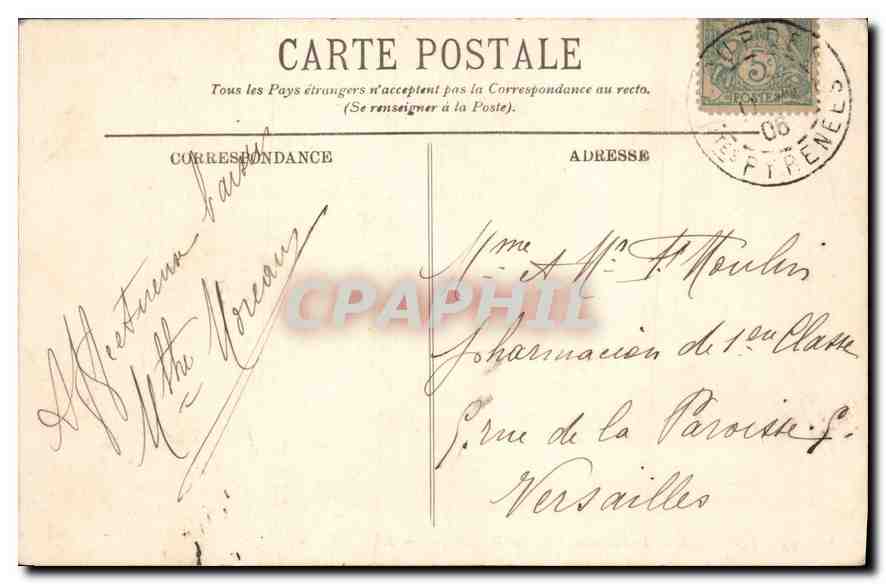 CARTE POSTALE
Tous les Pays étrangers n'acceptent pas la Correspondance au recto.
(Se renseigner à la Poste).
CORRESPONDANCE
ADRESSE
5c
POSTES
06
Htes PYRÉNÉES
Affectueux baisers
Mthe Moreau
CPAPHIL
Mme & Mr Ft Moulin
pharmacien de 1ere Classe
5. rue de la Paroisse. 5.
Versailles